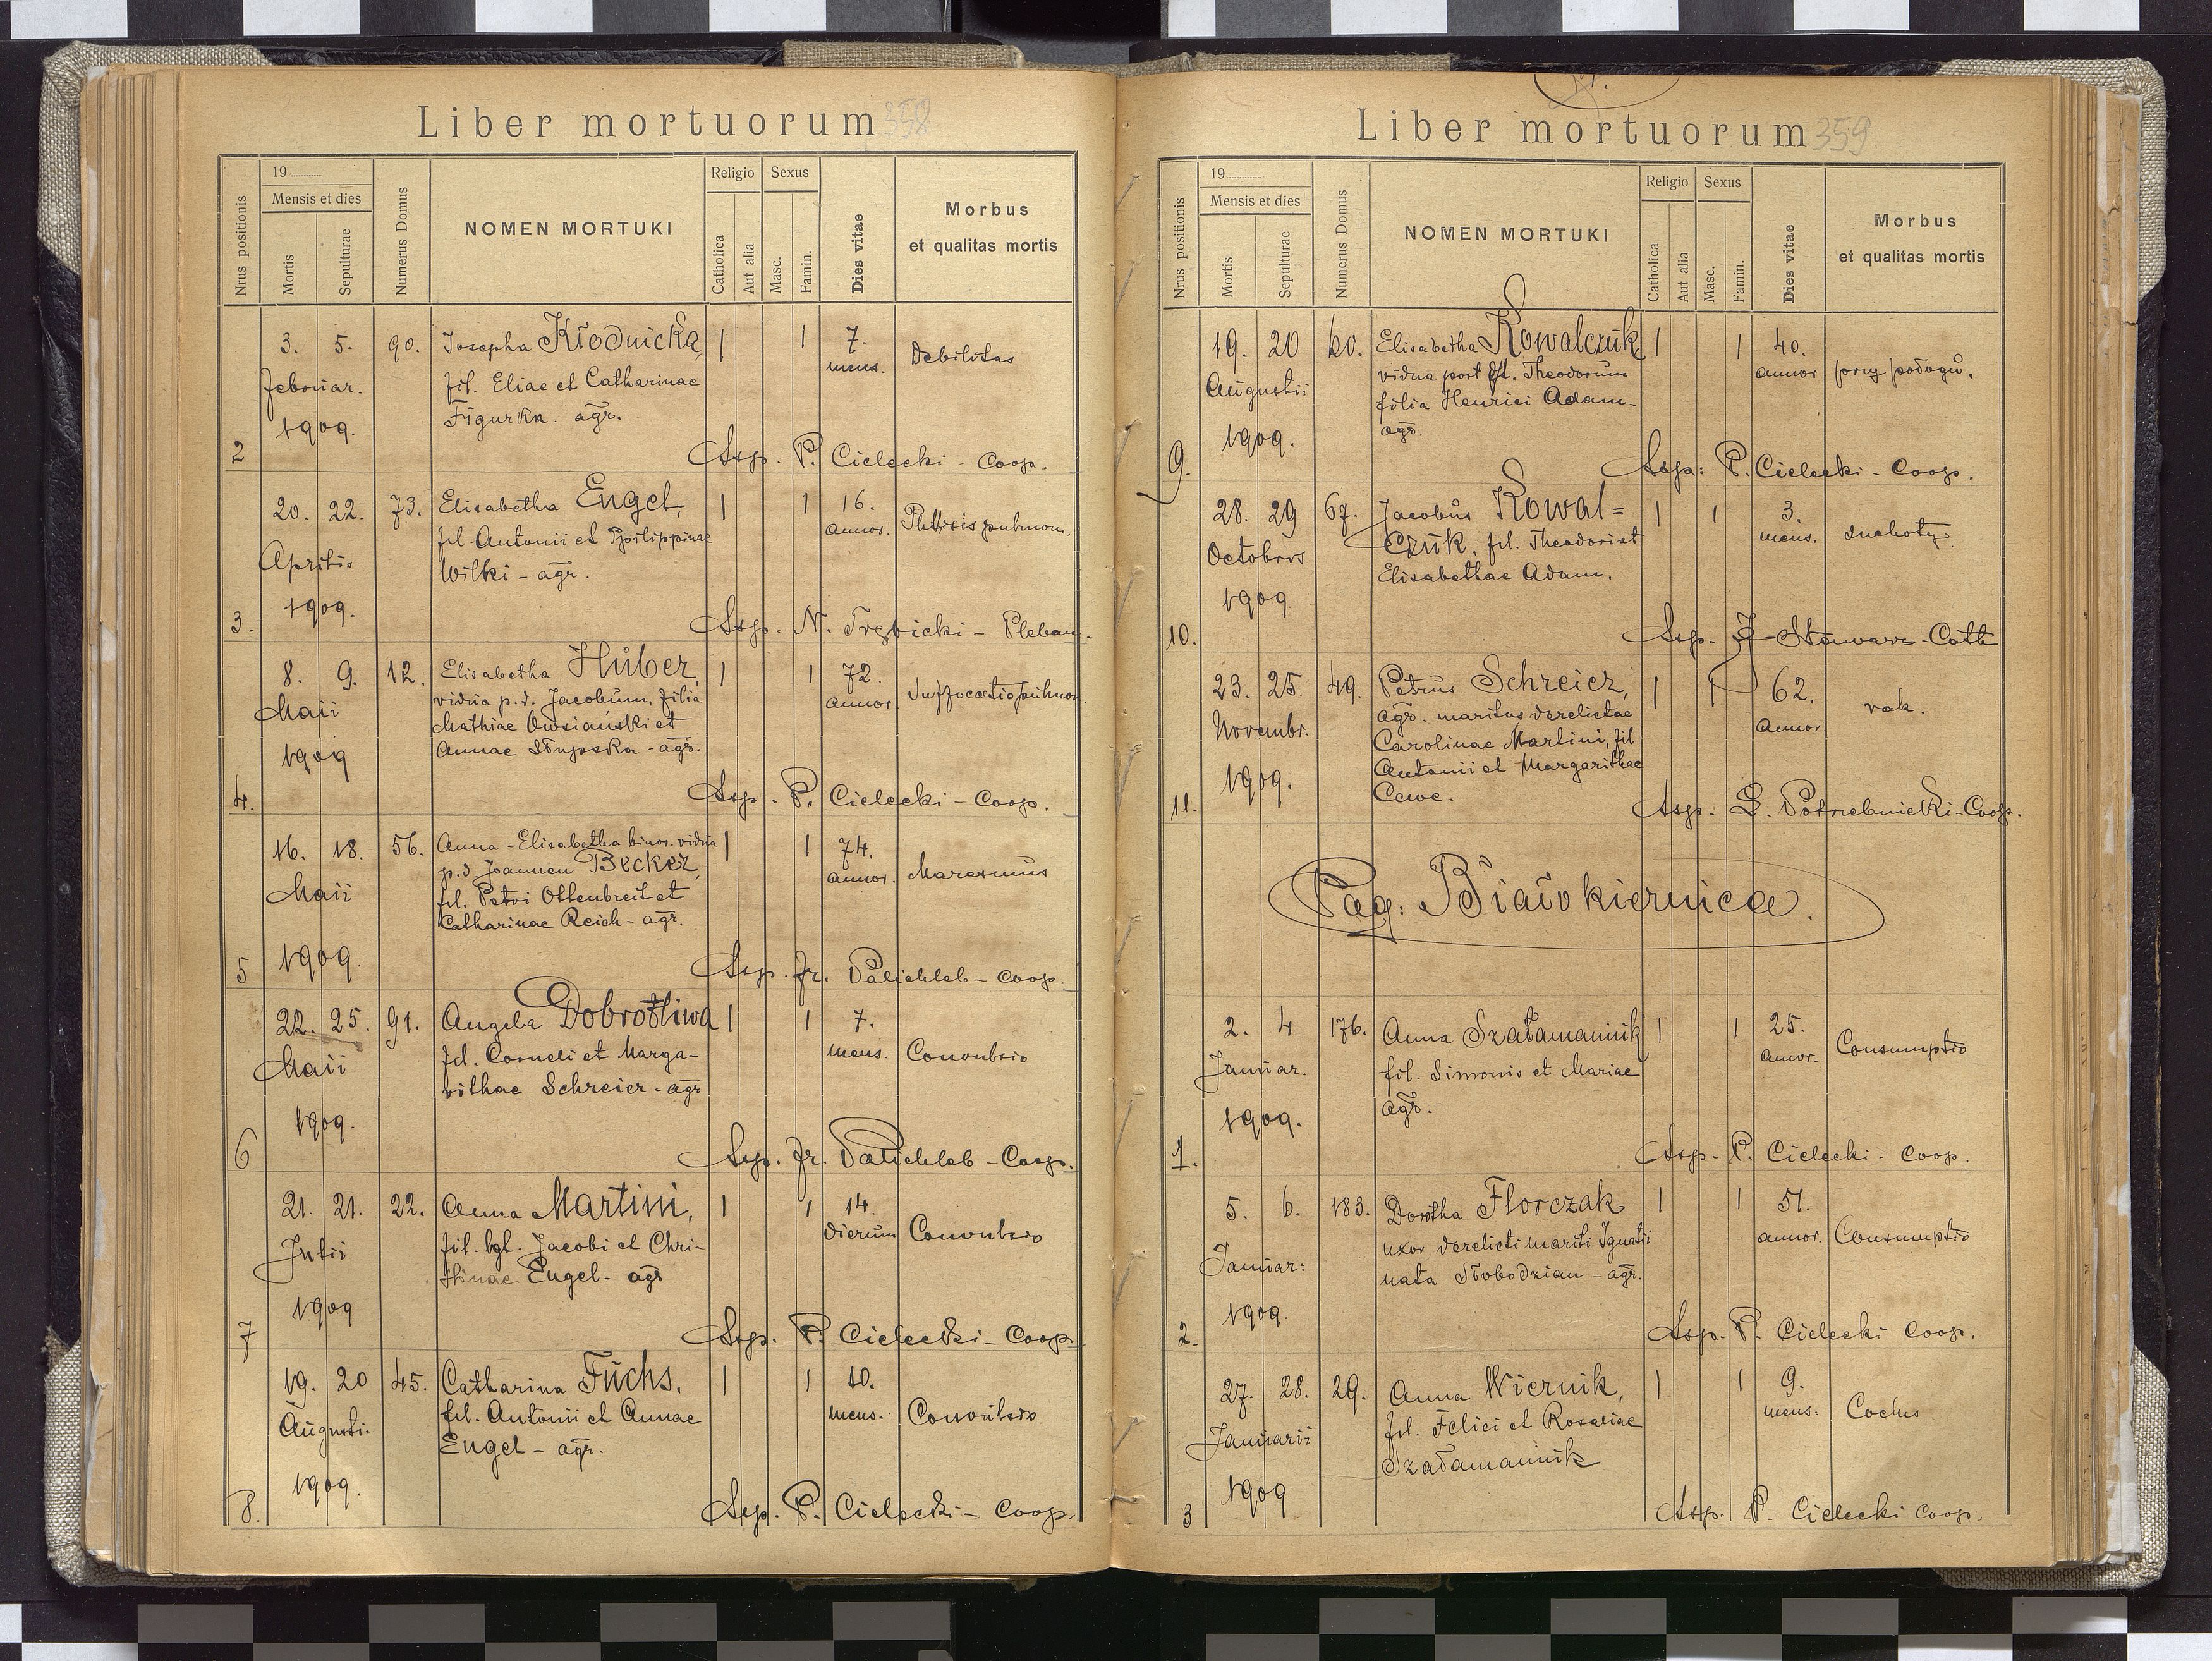 Liber mortuorum 358
Nrus positionis
19
Mensis et dies
Mortis
Sepulturae
Numerus Domus
NOMEN MORTUKI
Religio
Catholica
Aut alia
Sexus
Masc.
Famin.
Dies vitae
Morbus
et qualitas mortis
2
3. 5. 90.
Februar.
1909.
Josepha Kłodnicka,
fil. Eliae et Catharinae
Figurka. agr.
1 1 7.
mens.
Debilitas
Asp. P. Cielecki - Coop.
3.
20. 22. 73.
Aprilis
1909.
Elisabetha Engel,
fil. Antonii et Philippinae
Wilki - agr.
1 1 16.
annor.
Phtisis pulmon.
Asp. N. Trębicki - Pleban.
4.
8. 9. 12.
Maii
1909
Elisabetha Hüber,
vidua p.d. Jacobum, filia
Mathiae Owsiański et
Annae Słupska - agr.
1 1 72.
annor
Suffocatio pulmon
Asp. P. Cielecki - Coop.
5
16. 18. 56.
Maii
1909.
Anna - Elisabetha binom. vidua
p.d. Joannem Becker,
fil. Petri Ottenbreit et
Catharinae Reich - agr.
1 1 74.
annor.
Marasmus
Asp. Fr. Palichleb - Coop.
6
22. 25. 91.
Maii
1909.
Angela Dobrotliwa
fil. Corneli et Marga-
rithae Schreier - agr
1 1 7.
mens.
Convulsio
Asp. Fr. Palichleb - Coop.
7
21. 21. 22.
Julii
1909
Anna Martini,
fil. lgt. Jacobi et Chri-
stinae Engel - agr
1 1 14.
dierum
Convulsio
Asp. P. Cielecki - Coop.
8.
19. 20 45.
Augusti.
1909.
Catharina Fuchs.
fil. Antonii et Annae
Engel - agr.
1 1 10.
mens.
Convulsio
Asp. P. Cielecki - Coop.
Liber mortuorum 359
Nrus positionis
19
Mensis et dies
Mortis
Sepulturae
Numerus Domus
NOMEN MORTUKI
Religio
Catholica
Aut alia
Sexus
Masc.
Famin.
Dies vitae
Morbus
et qualitas mortis
9.
19. 20 60.
Augustii
1909.
Elisabetha Kowalczuk
vidua post ft. Theodorum
filia Henrici Adam-
agr.
1 1 40.
annor
przy połogu.
Asp: P. Cielecki - Coop.
10.
28. 29 67.
Octobris
1909.
Jacobus Kowal=
czuk, fil. Theodori et
Elisabethae Adam.
1 1 3.
mens.
suchoty
Asp. J Stewarz - Cath
11.
23. 25. 49.
Novembr.
1909.
Petrus Schreier,
agr. maritus derelictae
Carolinae Martini, fil
Antonii et Margarithae
Cewe.
1 1 62.
annor.
rak.
Asp. L. Potrzebnicki - Coop.
Pag: Białokiernica.
1.
2. 4 176.
Januar.
1909.
Anna Szałamaniuk
fil. Simonis et Mariae
agr.
1 1 25.
annor.
Consumptio
Asp. P. Cielecki - Coop.
2.
5. 6. 183.
Januar:
1909.
Dorotha Florczak
uxor derelicti mariti Ignatii
nata Słobodzian - agr.
1 1 51.
annor.
Consumptio
Asp. P. Cielecki Coop.
3
27. 28. 29.
Januarii
1909
Anna Wiernik,
fil. Felici et Rosaliae
Szałamaniuk
1 1 9.
mens.
Coclus
Asp. P. Cielecki Coop.